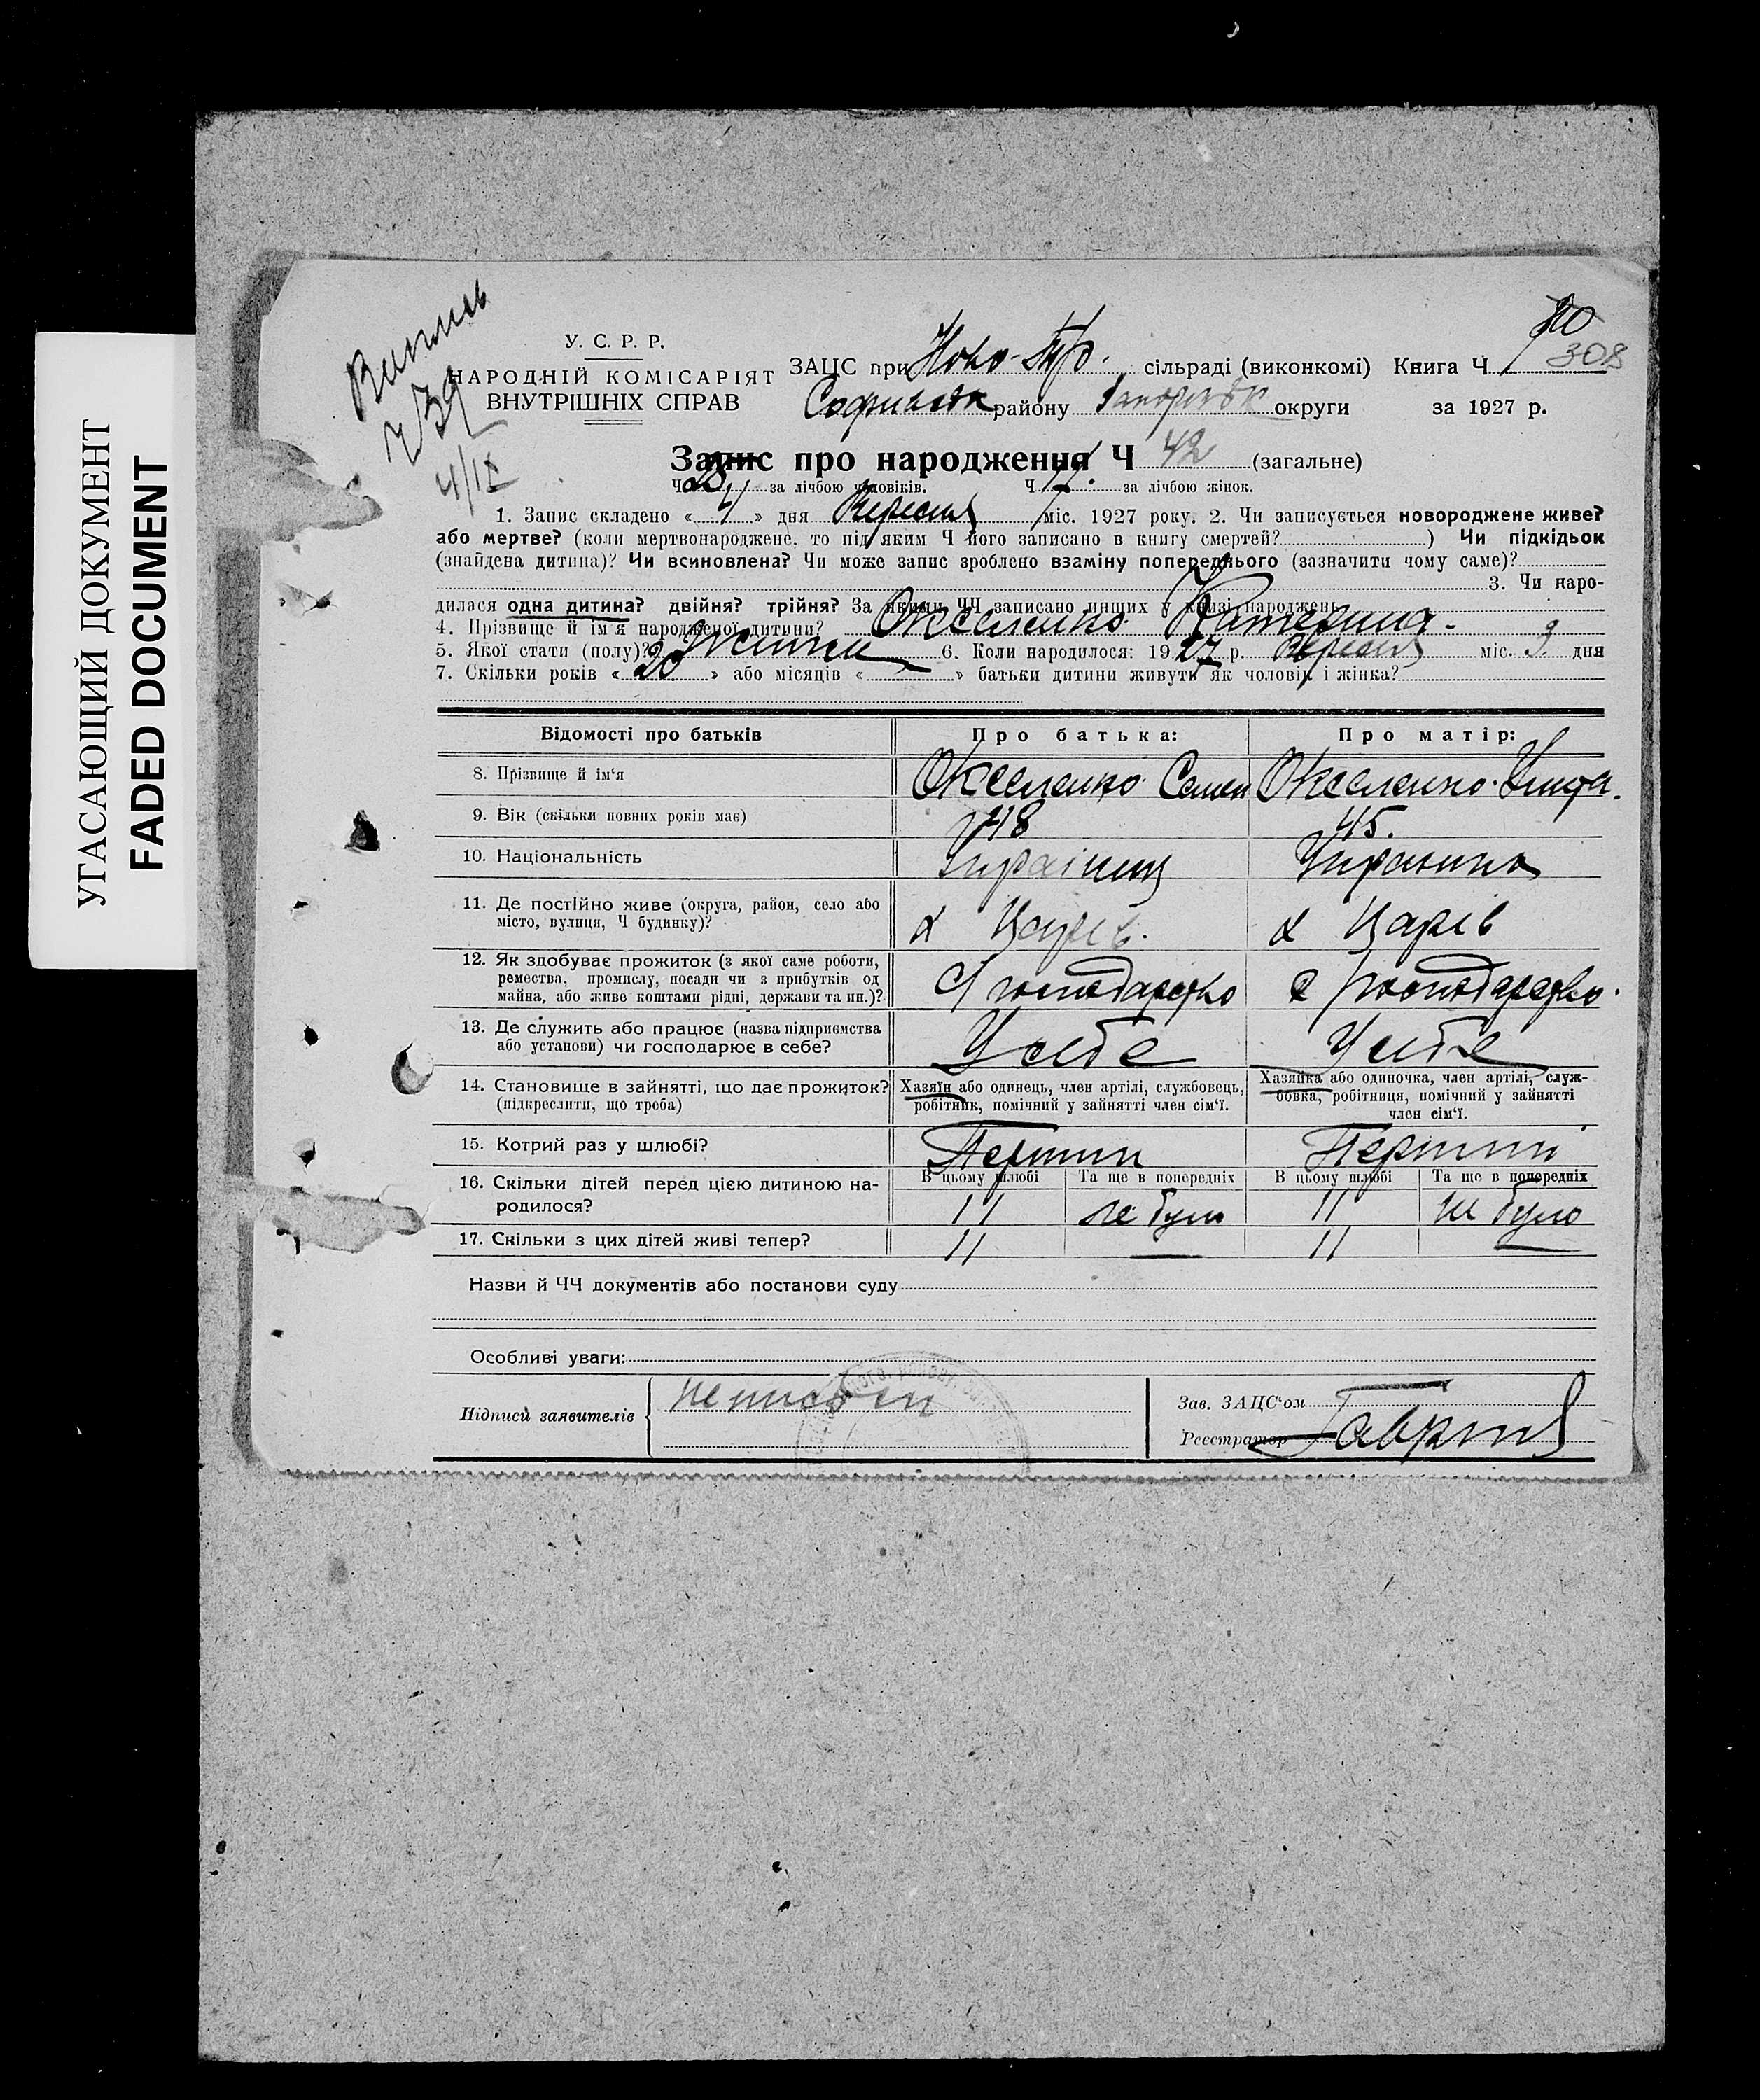 УГАСАЮЩИЙ ДОКУМЕНТ
FADED DOCUMENT
4/IX
308
У. С. Р. Р.
НАРОДНІЙ КОМІСАРІЯТ
ВНУТРІШНІХ СПРАВ
ЗАЦС при Ново- сільраді (виконкомі) Книга Ч
району округи за 1927 р.
Запис про народження Ч 42 (загальне)
Ч за лічбою чоловіків. Ч за лічбою жінок.
1. Запис складено « 4 » дня Вересня міс. 1927 року. 2. Чи записується новороджене живе?
або мертве? (коли мертвонароджене, то під яким Ч його записано в книгу смертей? ) Чи підкідьок
(знайдена дитина)? Чи всиновлена? Чи може запис зроблено взаміну попереднього (зазначити чому саме)?
3. Чи наро-
дилася одна дитина? двійня? трійня? За якими ЧЧ записано инших у книзі народжень
4. Прізвище й ім'я народженої дитини? Катерина
5. Якої стати (полу)? 6. Коли народилося: 1927 р. Вересня міс. 3 дня
7. Скільки років « 20 » або місяців « » батьки дитини живуть як чоловік і жінка?
Відомості про батьків Про батька: Про матір:
8. Прізвище й ім'я Семен
9. Вік (скільки повних років має) 48 45.
10. Національність Українец Українка
11. Де постійно живе (округа, район, село або
місто, вулиця, Ч будинку)? х Царів. х Царів
12. Як здобуває прожиток (з якої саме роботи,
ремества, промислу, посади чи з прибутків од
майна, або живе коштами рідні, держави та ин.)? С господарство С господарство.
13. Де служить або працює (назва підприємства
або установи) чи господарює в себе? У себе У себе
14. Становище в зайнятті, що дає прожиток?
(підкреслити, що треба)
Хазяїн або одинець, член артілі, службовець,
робітник, помічний у зайнятті член сім'ї.
Хазяйка або одиночка, член артілі, служ-
бовка, робітниця, помічний у зайнятті
член сім'ї.
15. Котрий раз у шлюбі? Перший Перший
16. Скільки дітей перед цією дитиною на-
родилося?
В цьому шлюбі Та ще в попередніх В цьому шлюбі Та ще в попередніх
11 не було 11 не було
17. Скільки з цих дітей живі тепер? 11 — 11 —
Назви й ЧЧ документів або постанови суду
Особливі уваги:
Підписи заявителів
Зав. ЗАЦС'ом
Реєстратор